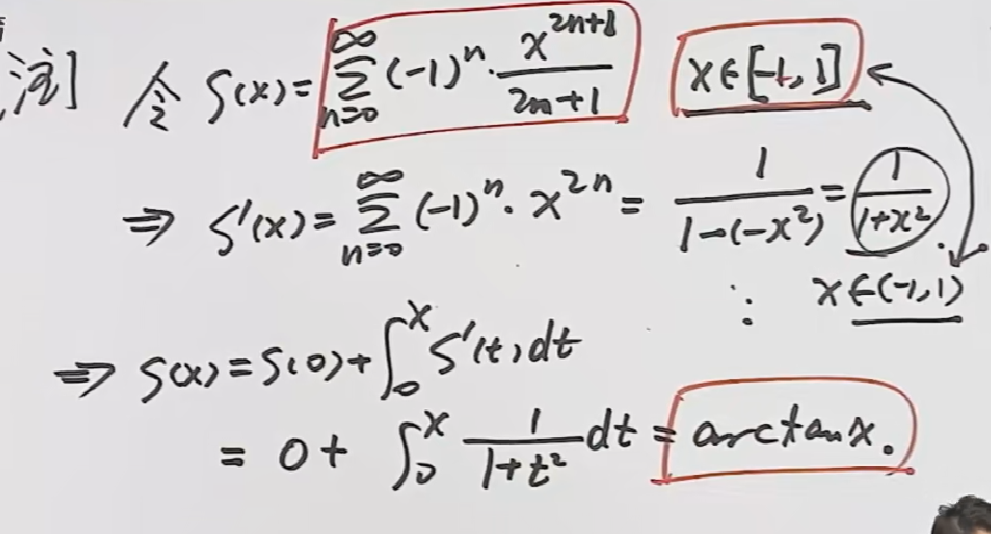 注] 令 S(x)=∑_{n=0}^{∞}(-1)^n·x^{2n+1}/(2n+1) x∈[-1,1]
⇒ S'(x)=∑_{n=0}^{∞}(-1)^n·x^{2n}=1/(1-(-x²))=1/(1+x²).
∵ x∈(-1,1)
⇒ S(x)=S(0)+∫_0^x S'(t)dt
= 0+∫_0^x 1/(1+t²)dt=arctanx.